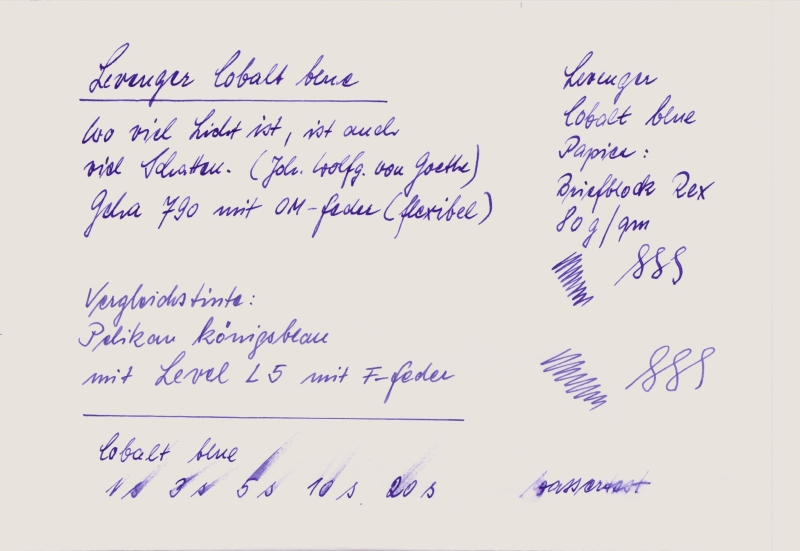 Levenger Cobalt blue
Wo viel Licht ist, ist auch
viel Schatten. (Joh. Wolfg. von Goethe)
Geha 790 mit OM-Feder (flexibel)
Vergleichstinte:
Pelikan königsblau
mit Level L5 mit F-Feder
Cobalt blue
1 s 3 s 5 s 10 s 20 s
Levenger
Cobalt blue
Papier:
Briefblock Rex
80 g/qm
Wassertest